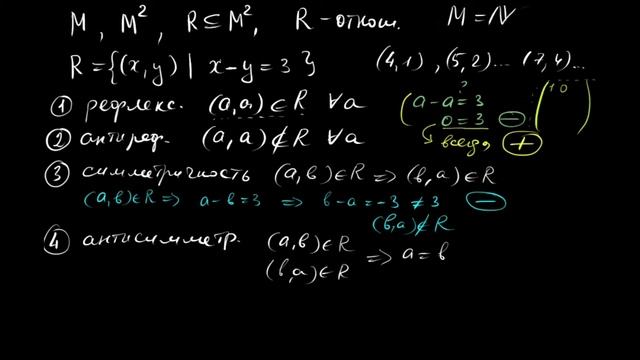 M, M², R ⊆ M², R - отнош. M = ℕ
R = {(x, y) | x - y = 3} (4,1), (5,2)... (7,4)...
① рефлекс. (a,a) ∈ R ∀a (a - a = 3 (1 0 )
0 = 3 ⊖
② антиреф. (a,a) ∉ R ∀a всегда ⊕
③ симметричность (a,b) ∈ R ⇒ (b,a) ∈ R
(a,b) ∈ R ⇒ a - b = 3 ⇒ b - a = -3 ≠ 3 ⊖
(b,a) ∉ R
④ антисимметр. (a,b) ∈ R
(b,a) ∈ R ⇒ a = b